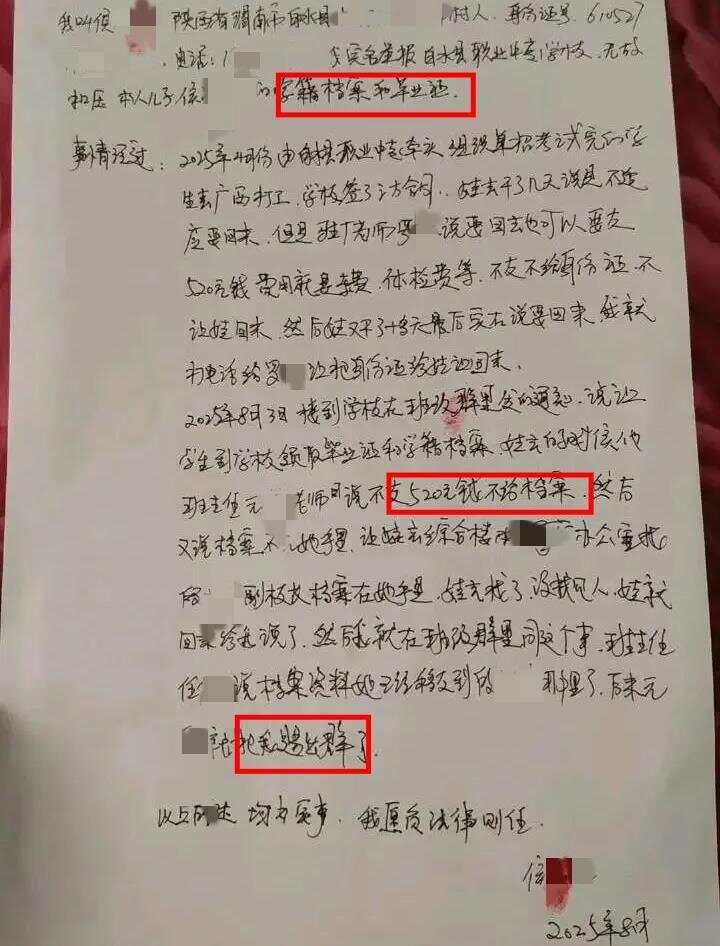 我叫侯 陕西省渭南市白水县 村人,身份证号,610527
,电话:1 实名举报白水县职业中专学校,无故
扣压本人儿子侯 的学籍档案和毕业证.
事情经过:2025年4月份由白水县职业中专牵头组织单招考试完的学
生去广西打工,学校签了三方合同,娃去干了几天说是不适
应要回来,但是驻厂老师罗 说要回去也可以要交
520元钱费用就是车费,体检费等,不交不给身份证,不
让娃回来,然后娃又干了十多天最后实在说要回来,我就
打电话给罗 让把身份证给娃让回来.
2025年8月3日接到学校在班级群里发的通知,说让
学生到学校领取毕业证和学籍档案,娃去的时候他
班主任元 老师说不交520元钱不给档案,然后
又说档案不 她手里,让娃去综合楼 办公室找
副校长档案在她手里,娃去找了,没找见人,娃就
回来给我说了,然后我就在班级群里问这个事,班主任
任 说档案资料她已经移交到 那里了,后来元
把我踢出群了,
以上 述均为实事,我愿负法律则任.
侯
2025年8月